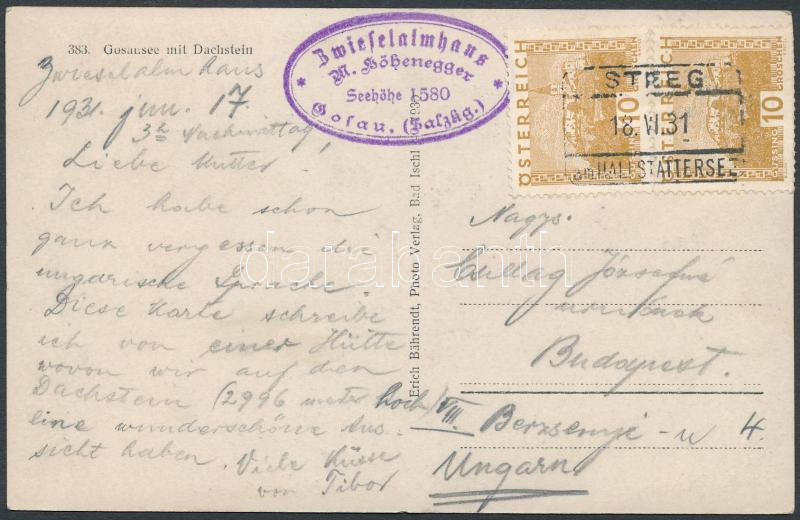 383. Gosausee mit Dachstein
Zwieselalm Haus
1931. jun. 17.
3h Nachmittag!
Liebe Mutter.
Ich habe schon
ganz vergessen die
ungarische Sprache.
Diese Karte schreibe
ich von einer Hütte
wovon wir auf den
Dachstein (2996 meter hoch)
eine wunderschöne Aus-
sicht haben. Viele Küsse
von Tibor
Zwieselalmhaus
M. Höhenegger
Seehöhe 1580
Gosau. (Salzkg.)
Erich Bährendt, Photo Verlag, Bad Ischl
ÖSTERREICH
10
GROSCHEN
ÖSTERREICH
10
GROSCHEN
STEEG
18.VI.31
am HALLSTÄTTERSEE
Nagys.
Csillag Józsefné
urnőnek
Budapest.
VIII. Berzsenyi-u 4.
Ungarn
databanth